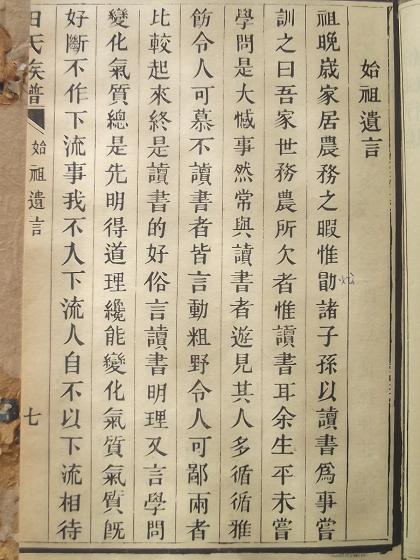 始祖遺言
祖晚歲家居農務之暇惟勖諸子孫以讀書爲事嘗
訓之曰吾家世務農所欠者惟讀書耳余生平未嘗
學問是大憾事然常與讀書者遊見其人多循循雅
飭令人可慕不讀書者皆言動粗野令人可鄙兩者
比較起來終是讀書的好俗言讀書明理又言學問
變化氣質總是先明得道理纔能變化氣質氣質旣
好斷不作下流事我不入下流人自不以下流相待
氏族譜
始祖遺言
七